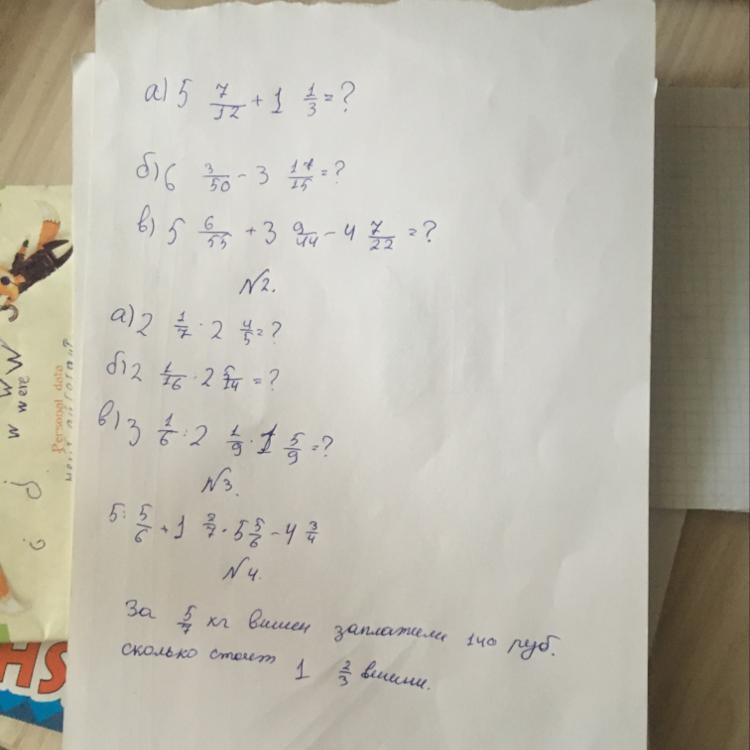 а) 5 7/12 + 1 1/3 = ?
б) 6 3/50 - 3 17/15 = ?
в) 5 6/55 + 3 9/44 - 4 7/22 = ?
N2.
а) 2 1/7 · 2 4/5 = ?
б) 2 1/16 · 2 5/14 = ?
в) 3 1/6 : 2 1/9 · 1 5/9 = ?
N3.
5 : 5/6 + 1 2/7 · 5 5/6 - 4 3/4
N4.
За 5/7 кг вишен заплатили 140 руб.
сколько стоит 1 2/3 вишни.
w were
Personal data
HS